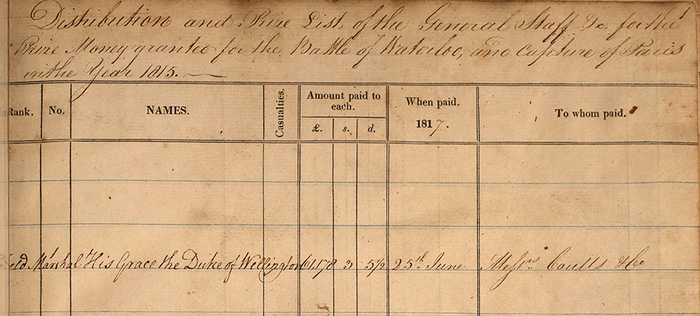 Distribution and Prize List, of the General Staff &c, for the
Prize Money granted for the Battle of Waterloo, and Capture of Paris
in the Year 1815.
Rank. No. NAMES. Casualties. Amount paid to each. £. s. d. When paid. 1817. To whom paid.
eld Marshal His Grace the Duke of Wellington 3 5½ 25th June Messrs Coutts & Co